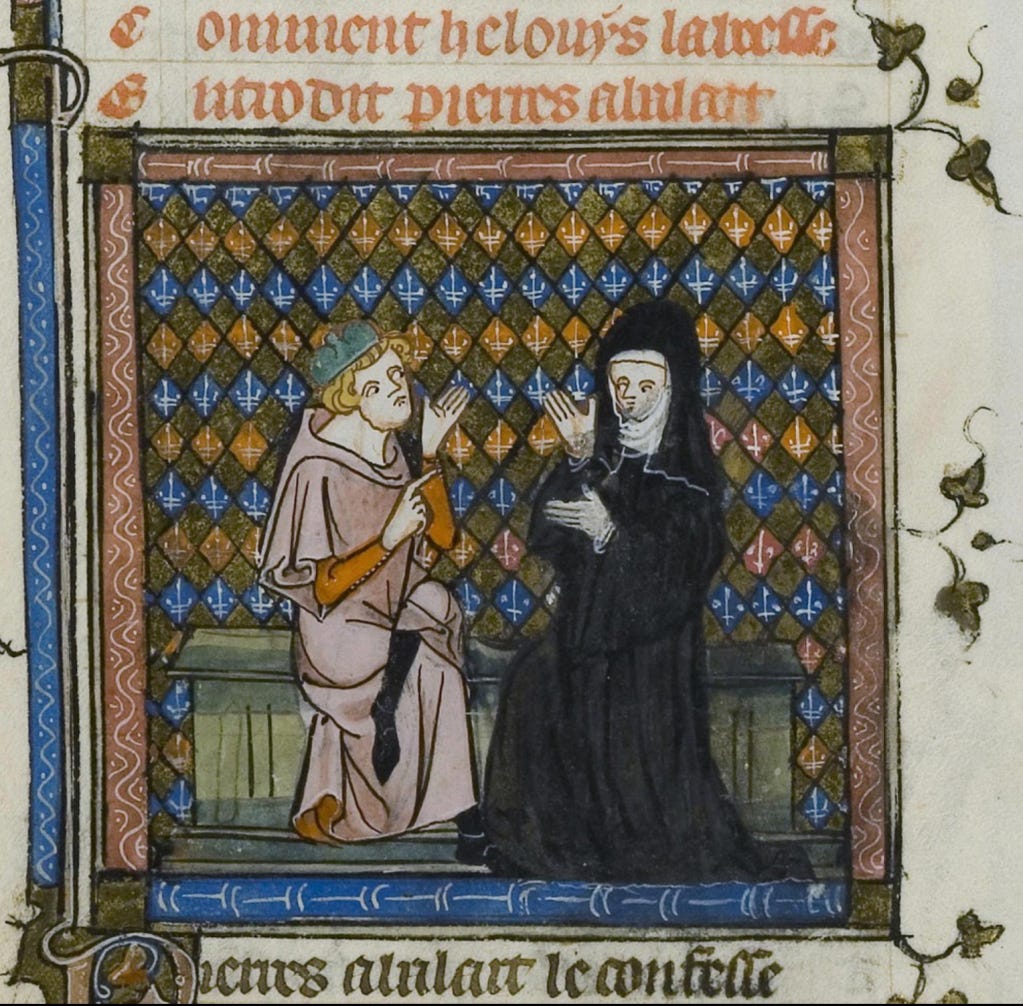 Comment heloys labeesse
Entrodit pierres abalart
Pierres abalart le confesse